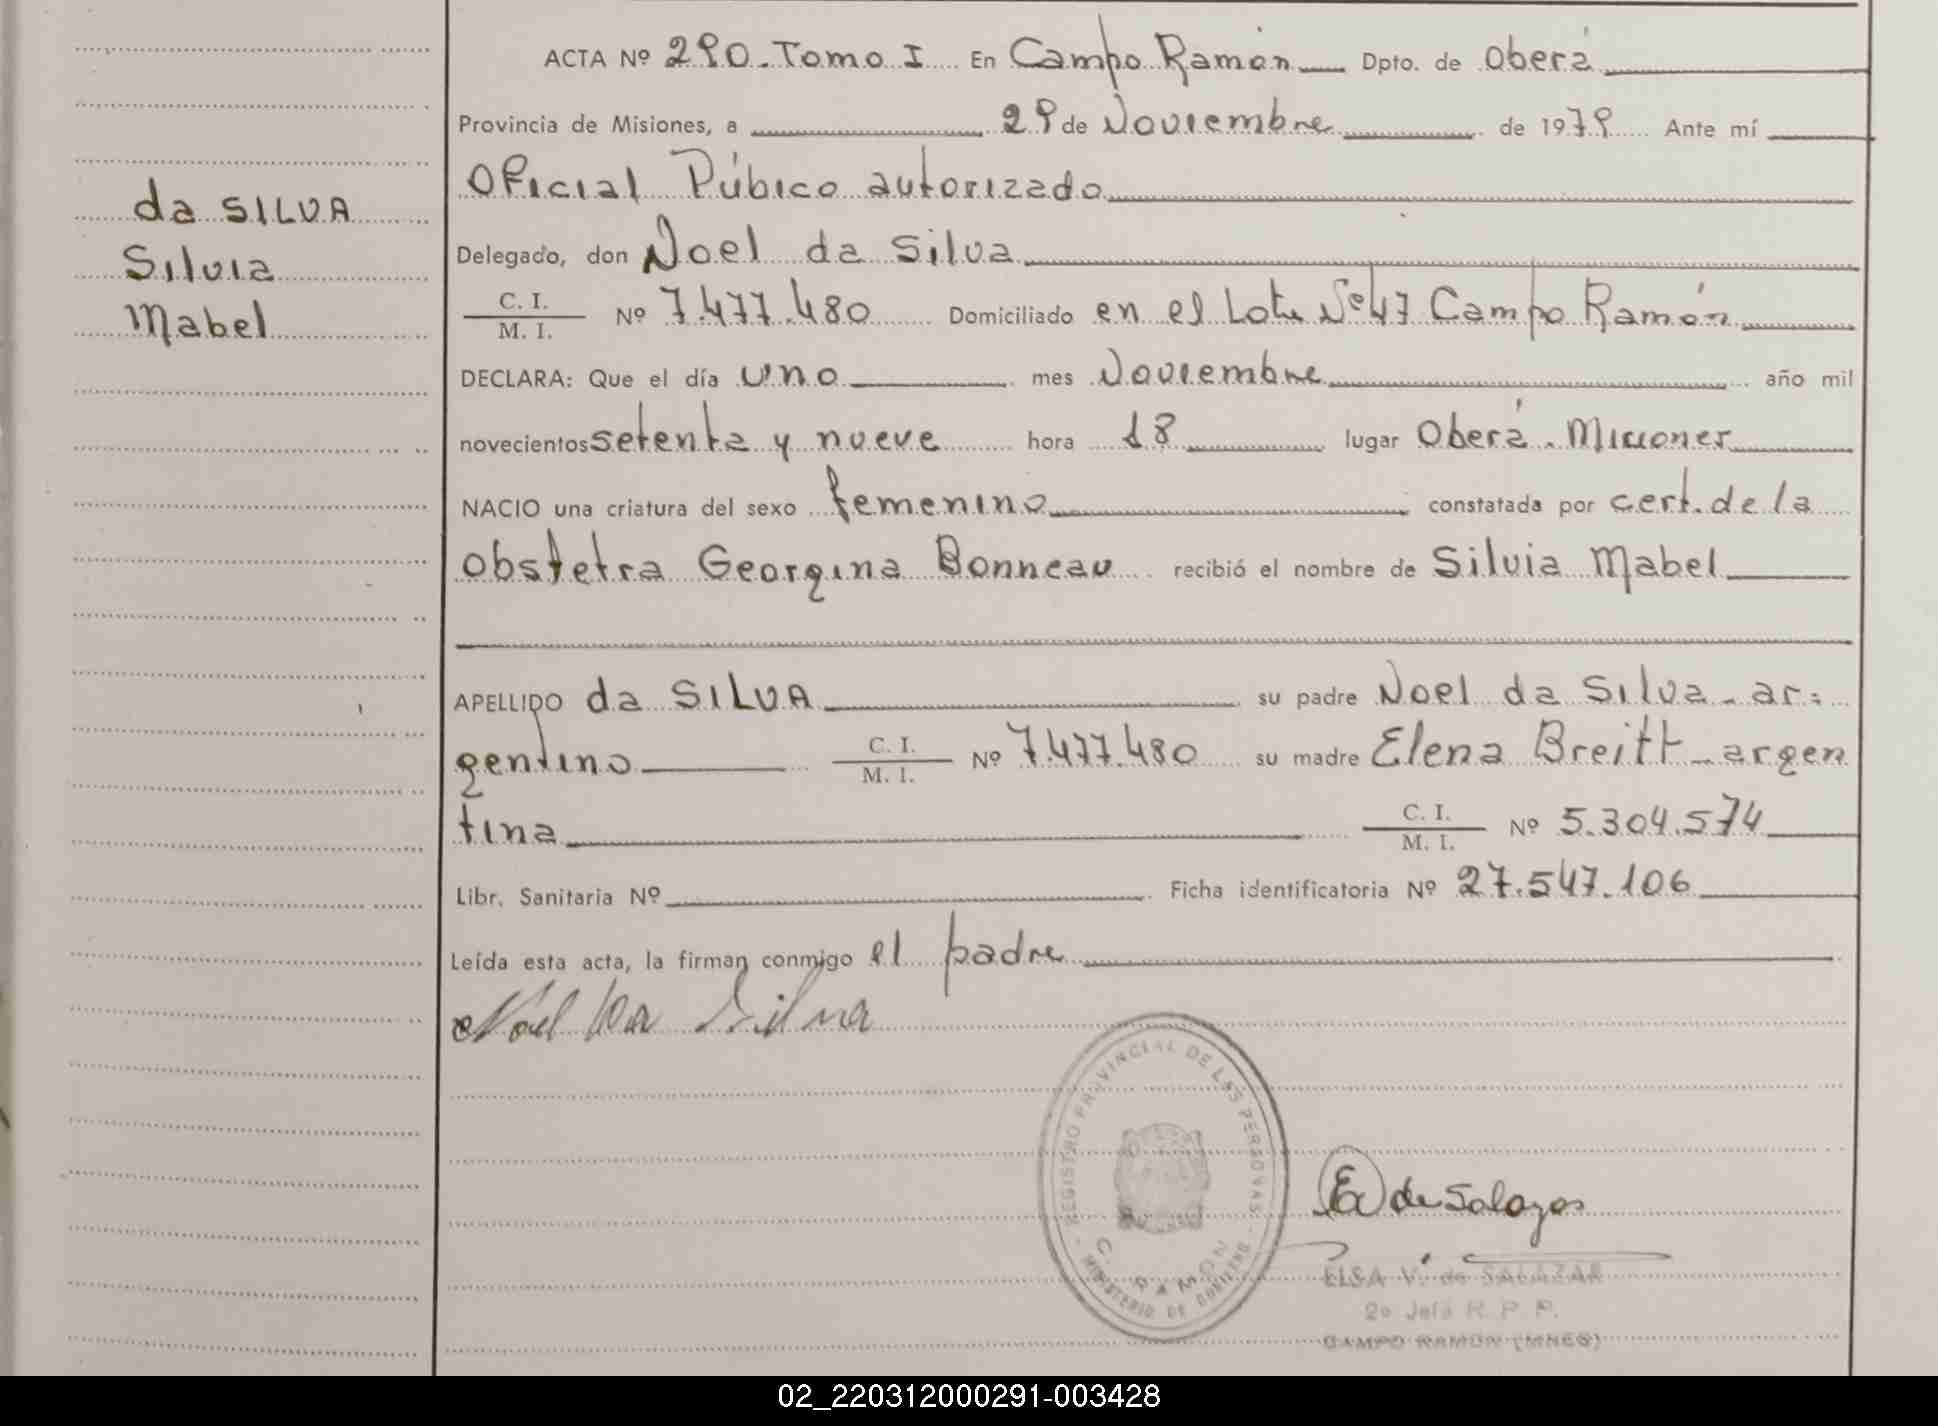 da SILVA
Silvia
Mabel
ACTA Nº 290. Tomo I En Campo Ramón Dpto. de Oberá
Provincia de Misiones, a 29 de Noviembre de 1979 Ante mí
Oficial Púbico autorizado
Delegado, don Noel da Silva
C. I.
M. I. Nº 7.477.480 Domiciliado en el Lote Nº 47 Campo Ramón
DECLARA: Que el día uno mes Noviembre año mil
novecientos setenta y nueve hora 18 lugar Oberá. Misiones
NACIO una criatura del sexo femenino constatada por cert. de la
obstetra Georgina Bonneau recibió el nombre de Silvia Mabel
APELLIDO da SILVA su padre Noel da Silva - ar-
gentino C. I. M. I. Nº 7.477.480 su madre Elena Breitt - argen
tina C. I. M. I. Nº 5.304.574
Libr. Sanitaria Nº Ficha identificatoria Nº 27.547.106
Leída esta acta, la firman conmigo el padre
Noel Da Silva
REGISTRO PROVINCIAL DE LAS PERSONAS
C. RAMON
MINISTERIO DE GOBIERNO
de Salazar
ELSA V. de SALAZAR
2º Jefe R. P. P.
CAMPO RAMON (MNES)
02_220312000291-003428